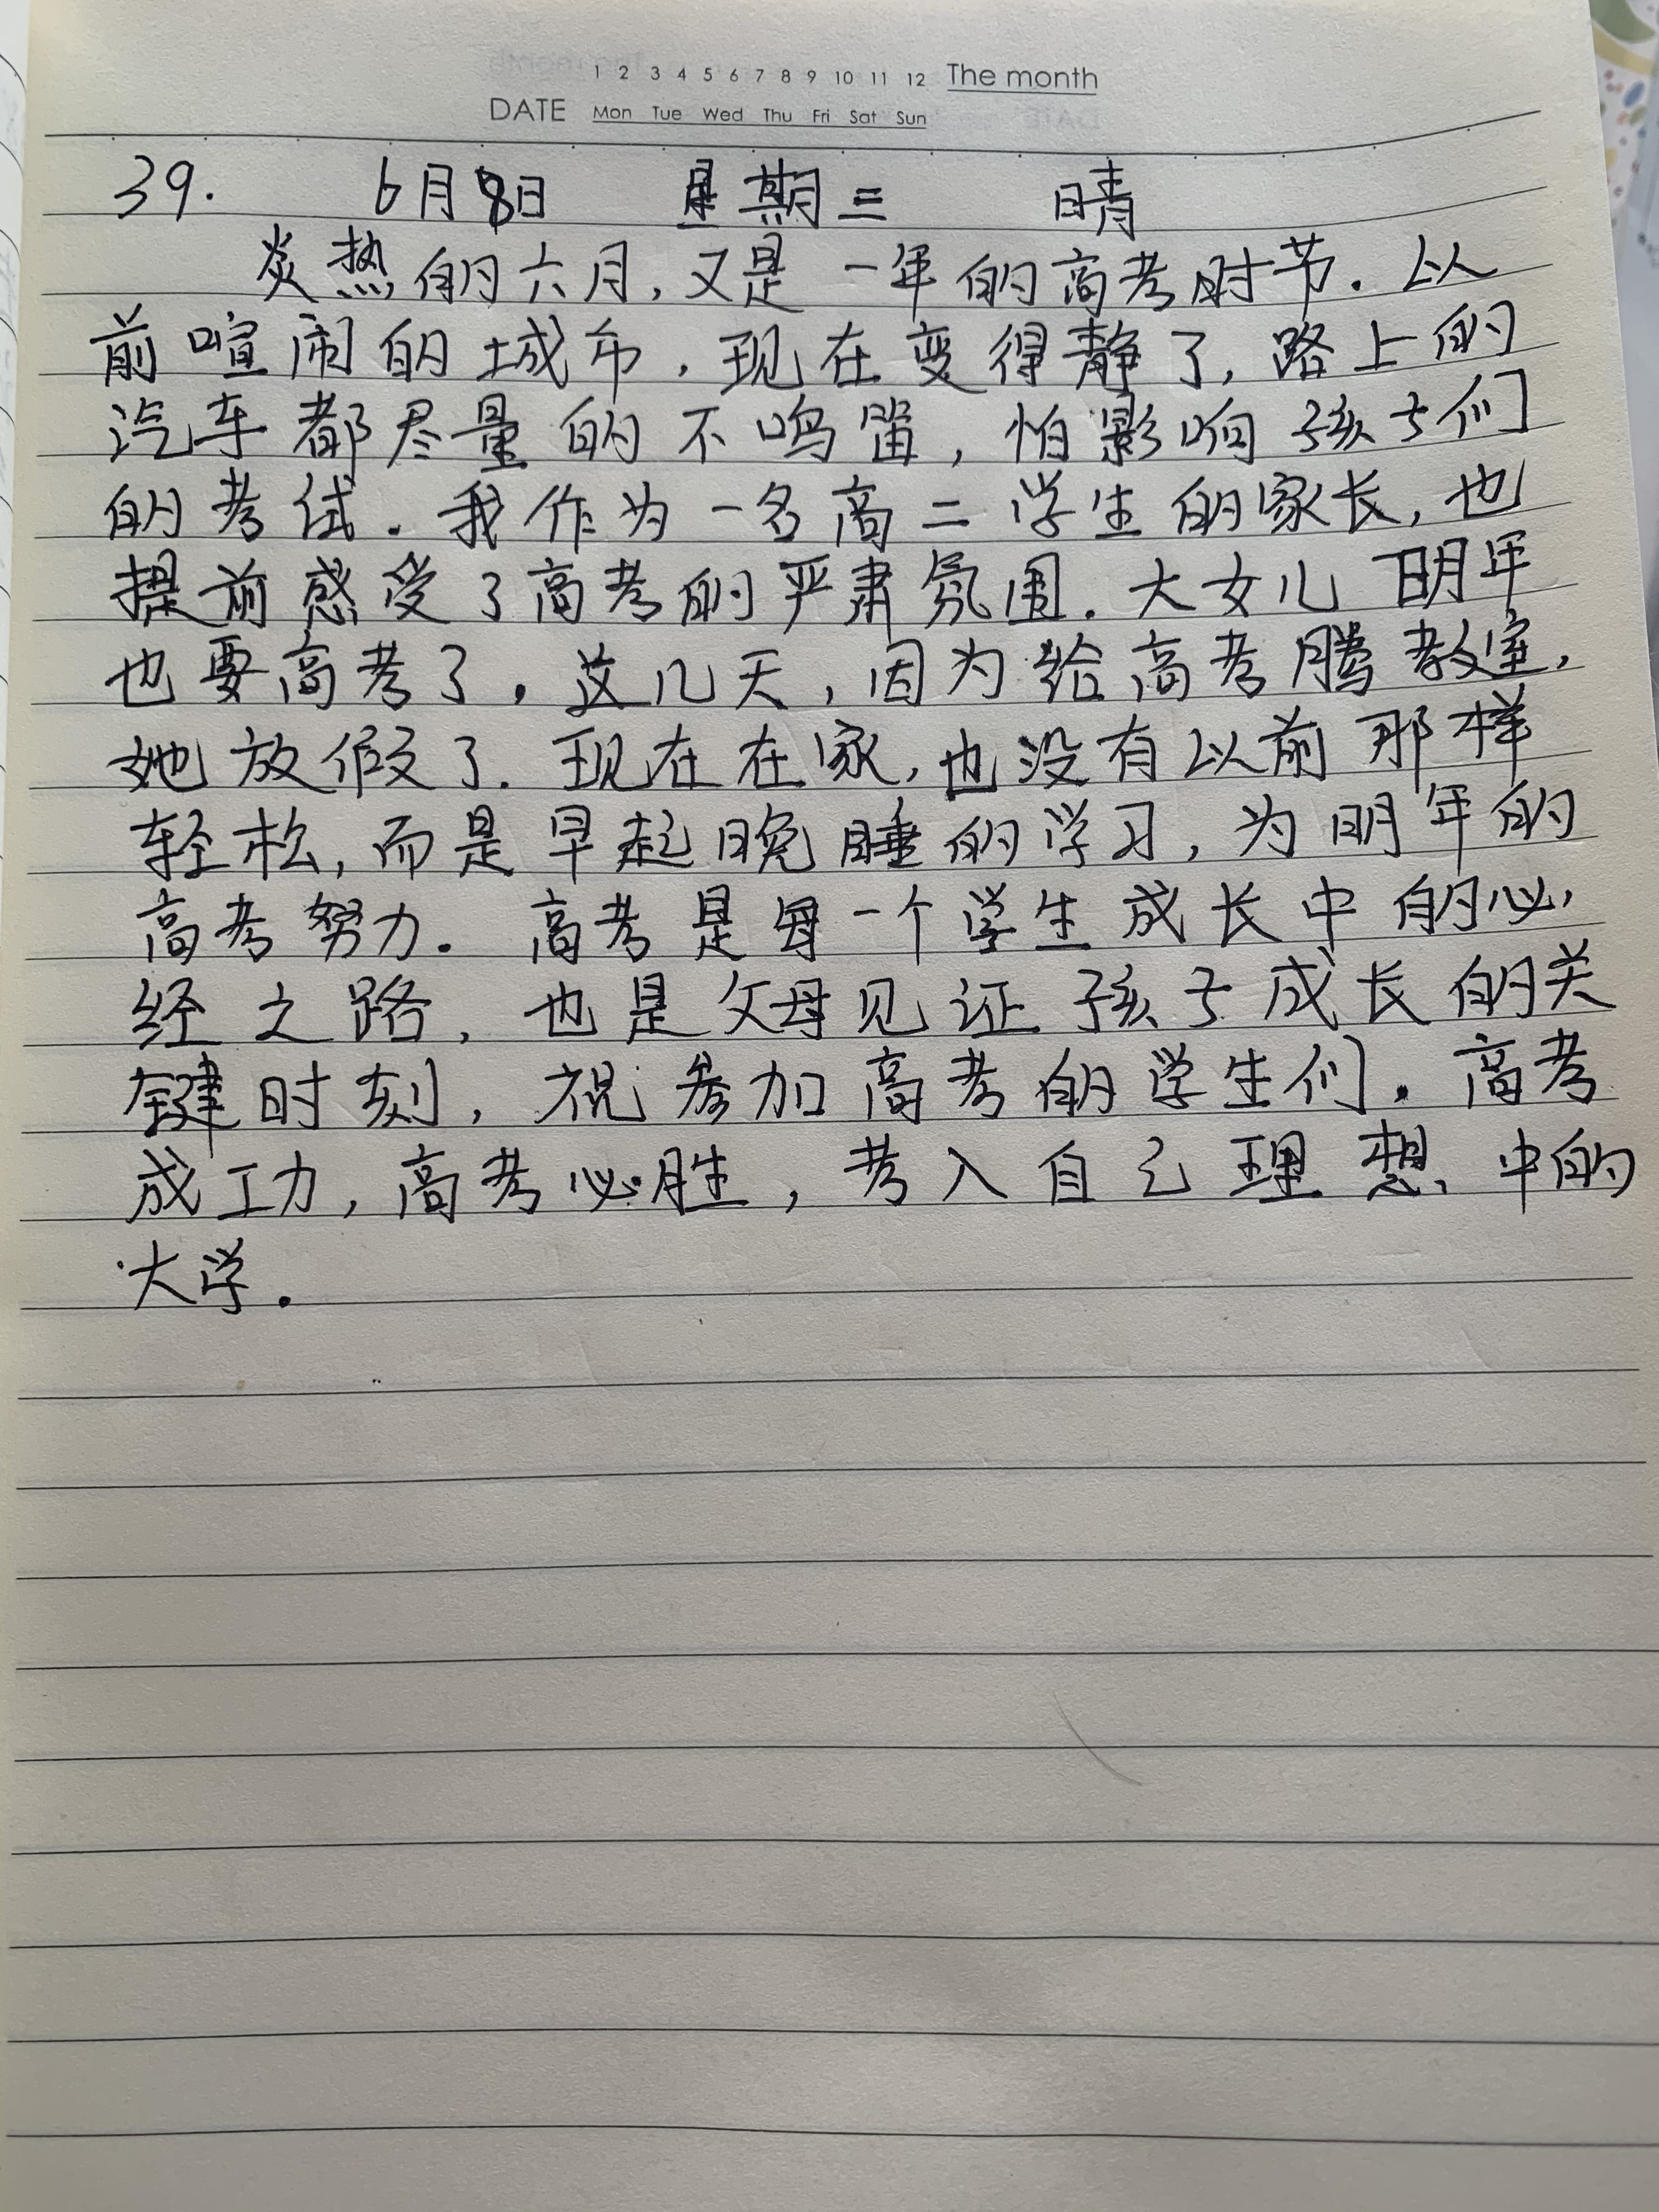 1 2 3 4 5 6 7 8 9 10 11 12 The month
DATE Mon Tue Wed Thu Fri Sat Sun
39. 6月8日 星期三 晴
炎热的六月,又是一年的高考时节.以
前喧闹的城市,现在变得静了,路上的
汽车都尽量的不鸣笛,怕影响孩子们
的考试.我作为一名高二学生的家长,也
提前感受了高考的严肃氛围.大女儿明年
也要高考了,这几天,因为给高考腾教室,
她放假了.现在在家,也没有以前那样
轻松,而是早起晚睡的学习,为明年的
高考努力.高考是每一个学生成长中的必
经之路,也是父母见证孩子成长的关
键时刻,祝参加高考的学生们.高考
成功,高考必胜,考入自己理想中的
大学.